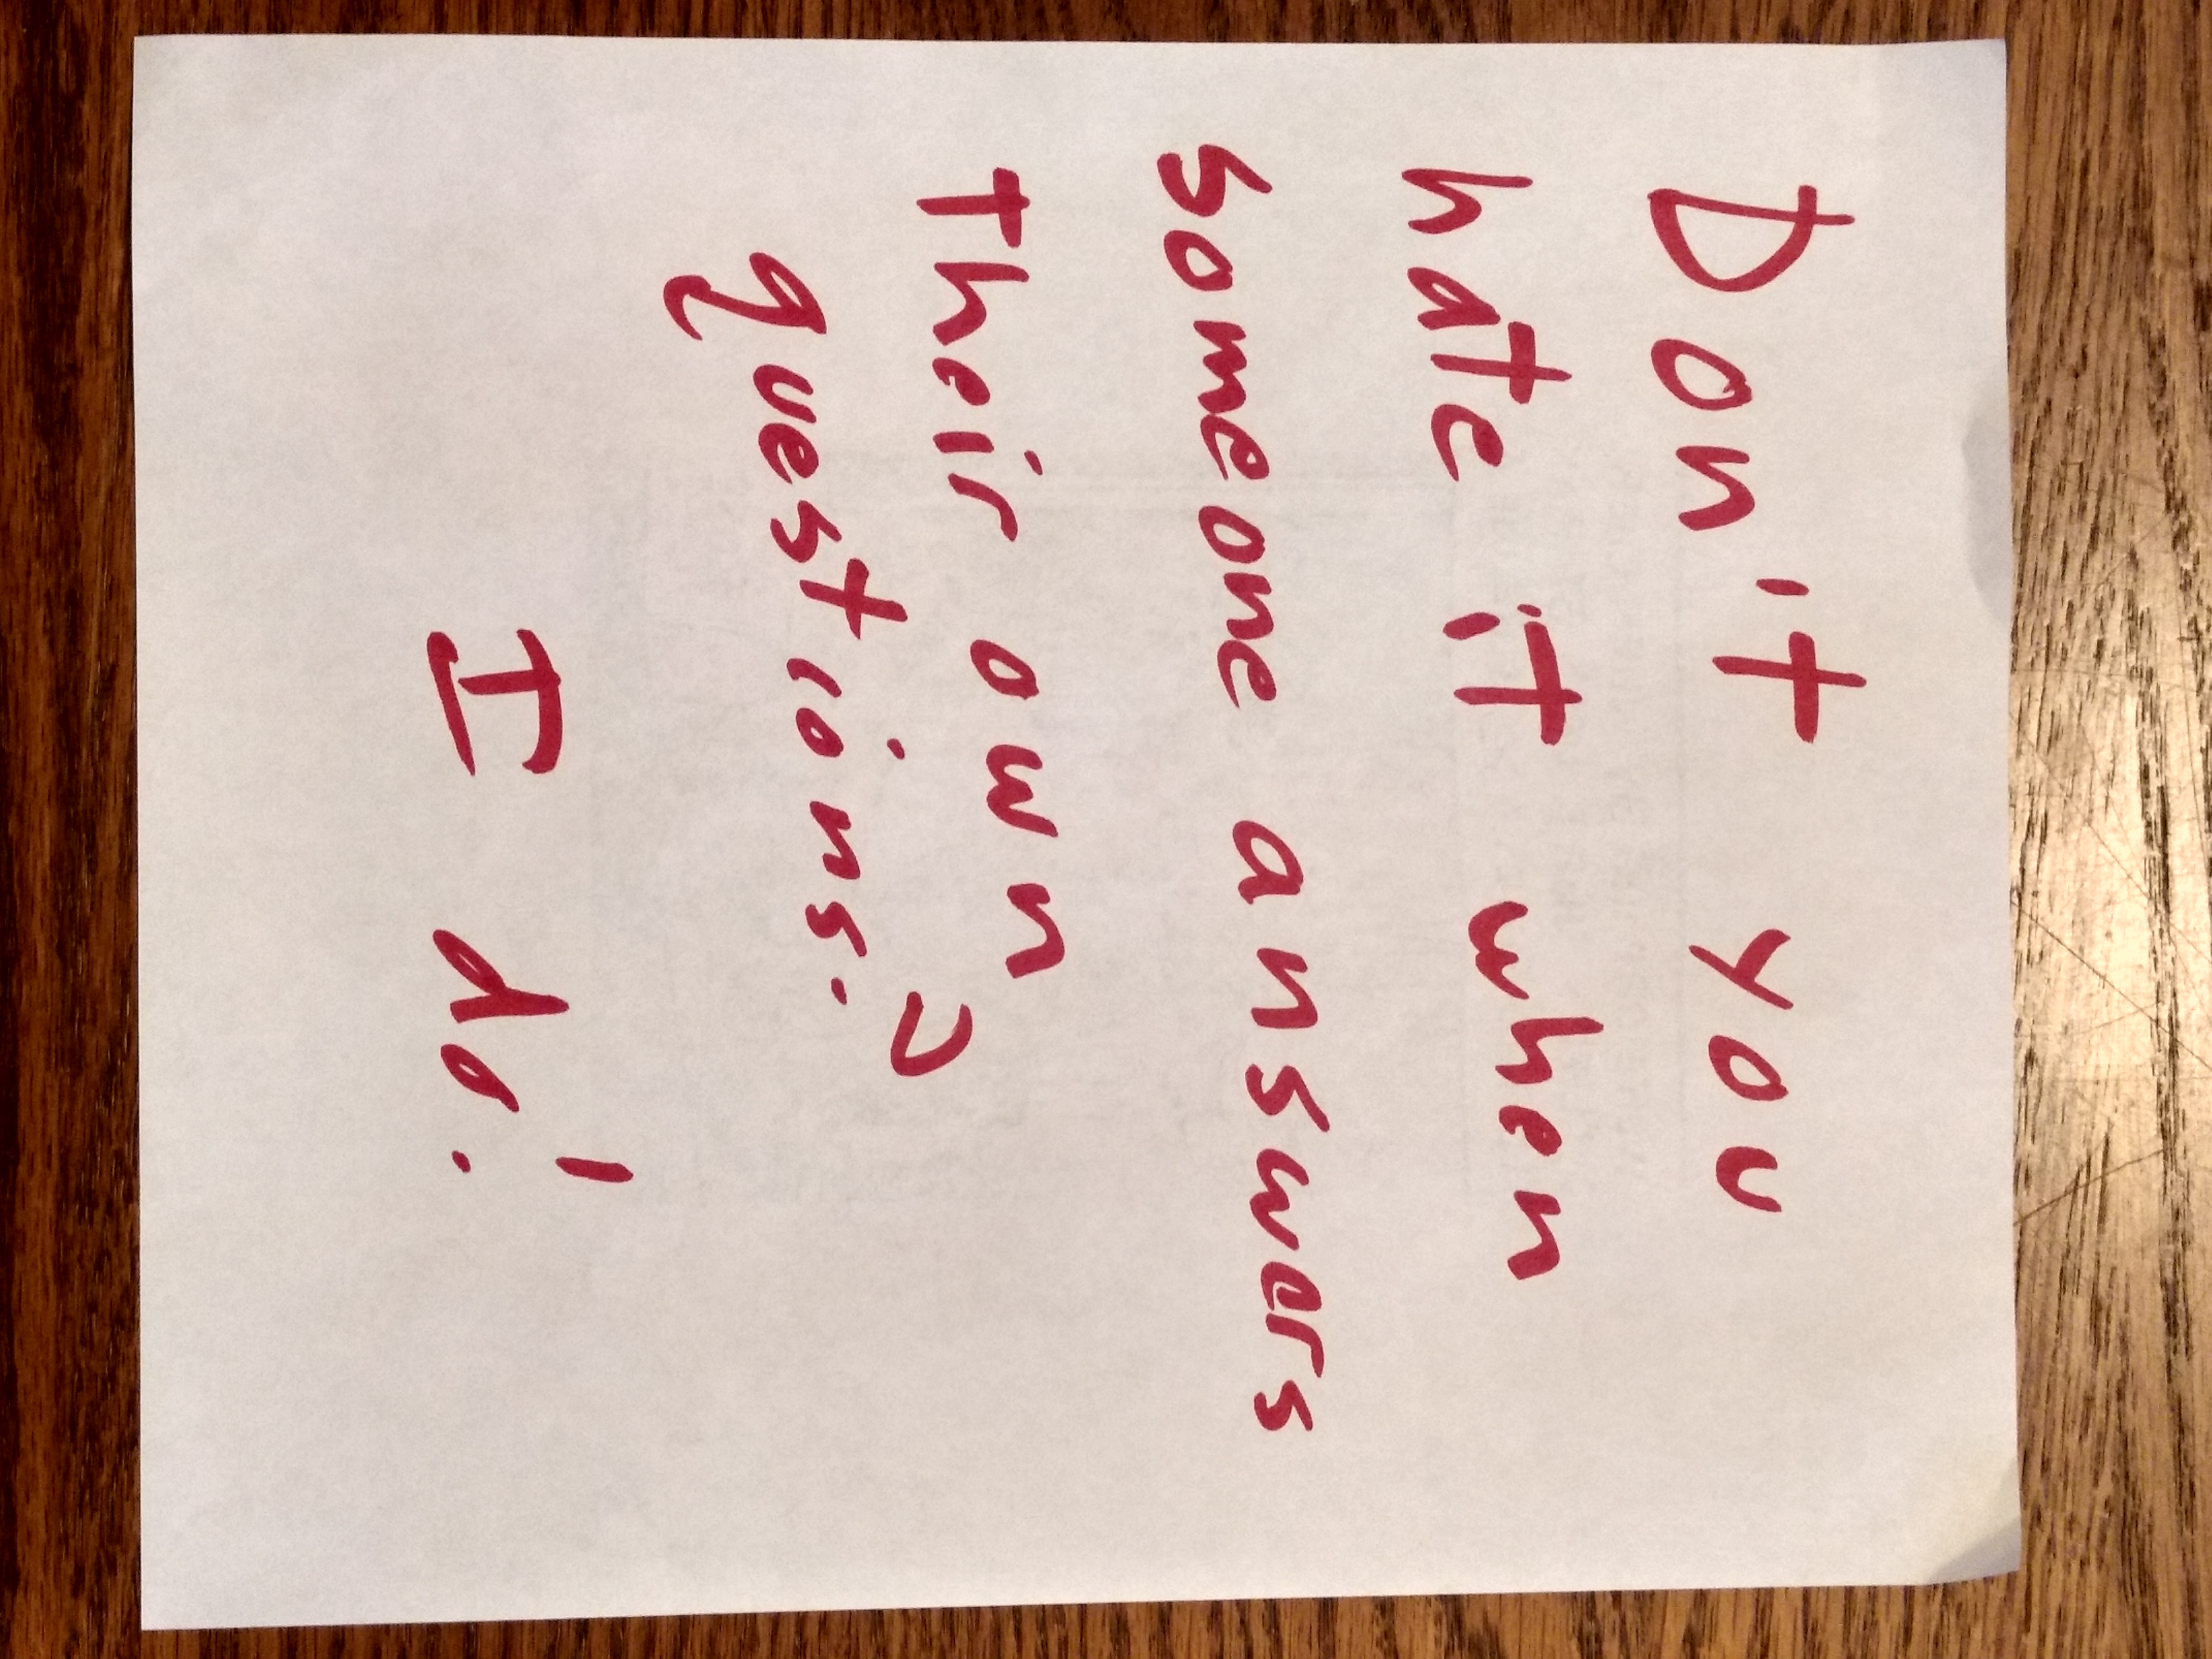 Don't you
hate it when
someone answers
their own
questions?
I do!